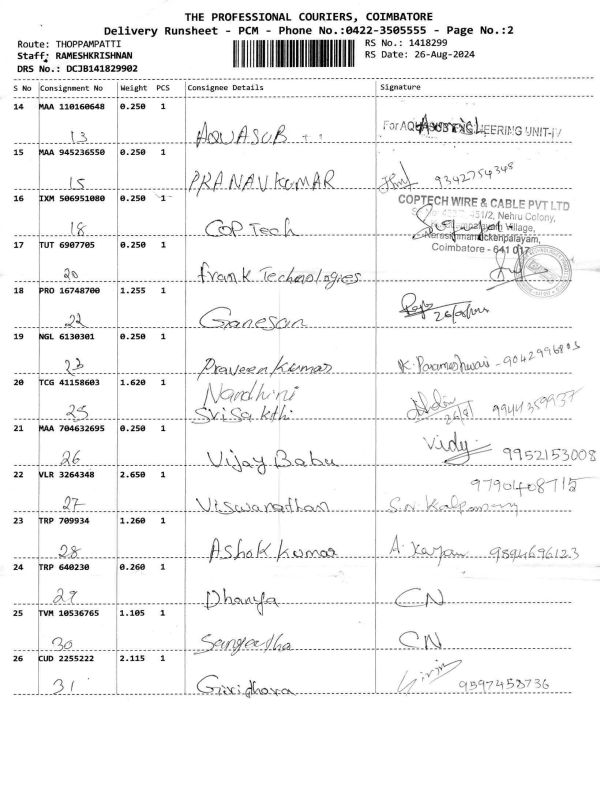 THE PROFESSIONAL COURIERS, COIMBATORE
Delivery Runsheet - PCM - Phone No.:0422-3505555 - Page No.:2
Route: THOPPAMPATTI
RS No.: 1418299
Staff: RAMESHKRISHNAN
RS Date: 26-Aug-2024
DRS No.: DCJB141829902
S No Consignment No Weight PCS Consignee Details Signature
14 MAA 110160648 0.250 1
13 AQUASUB For AQUASUB ENGINEERING UNIT-IV
15 MAA 945236550 0.250 1
15 PRANAV KUMAR 9342754345
16 IXM 506951080 0.250 1
COPTECH WIRE & CABLE PVT LTD
451/2, Nehru Colony,
18 COP Tech Village,
17 TUT 6907705 0.250 1
Coimbatore - 641 017
20 frank Technologies
18 PRO 16748700 1.255 1
22 Ganesan
19 NGL 6130301 0.250 1
23 Praveen Kumar K. Parameshwari - 9042996803
20 TCG 41158603 1.620 1
Nandhini
25 Sri Sakthi 9944359937
21 MAA 704632695 0.250 1
26 Vijay Babu Vidy 9952153008
22 VLR 3264348 2.650 1
9790408715
27 Viswanathan S.N. Kalpana
23 TRP 709934 1.260 1
28 Ashok kumar A. 9894696123
24 TRP 640230 0.260 1
29 Dhanya CN
25 TVM 10536765 1.105 1
30 Sangeetha CN
26 CUD 2255222 2.115 1
31 Giridhara 9597458736